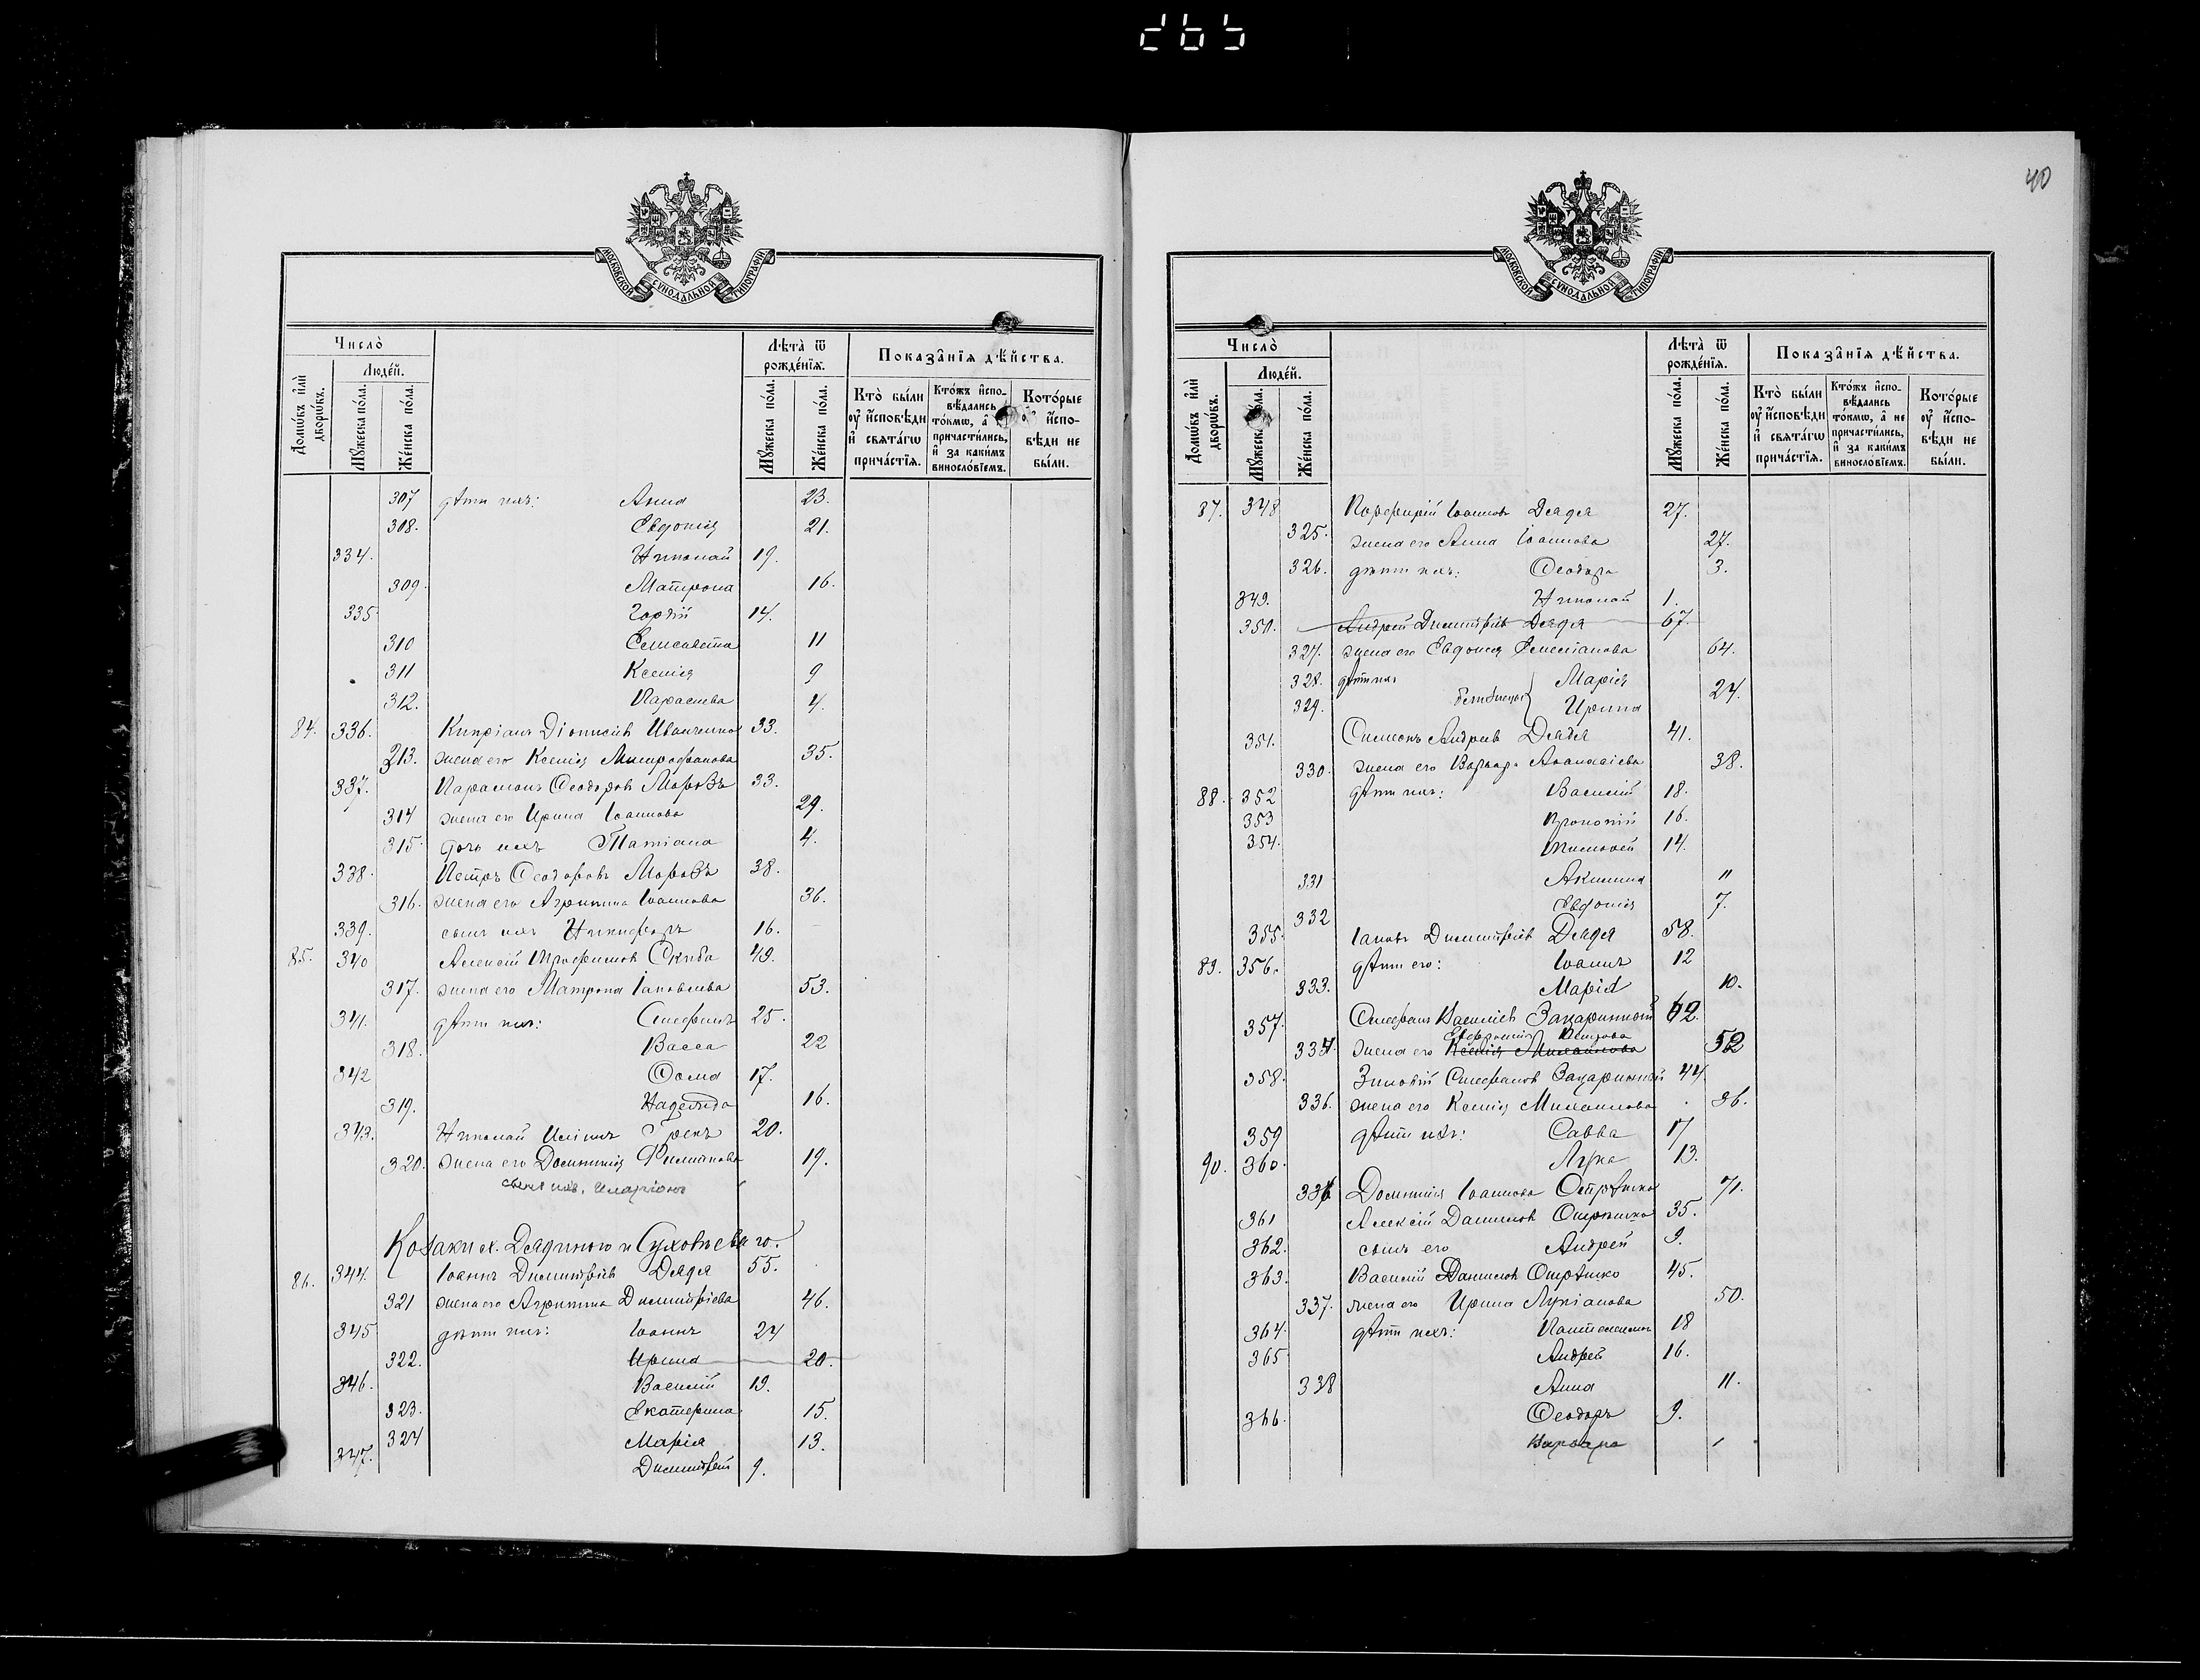 265
МОСКОВСКОЙ СѴНОДАЛЬНОЙ ТИПОГРАФІИ
Число̀
Люде́й.
Домѡ́въ и҆лѝ дворѡ́въ.
Мꙋ́жеска по́ла.
Же́нска по́ла.
Лѣ́та ѿ рожде́нїѧ.
Мꙋ́жеска по́ла.
Же́нска по́ла.
Показа̑нїѧ дѣ́йства.
Кто̀ бы́ли ᲂу҆ и҆сповѣ́ди и҆ свѧта́гѡ прича́стїѧ.
Кто́жъ и҆сповѣ́дались то́кмѡ, а҆ причасти́лись, и҆ за каки́мъ винослові́емъ.
Кото́рые ᲂу҆ и҆сповѣ́ди не бы́ли.
307 дѣти ихъ: Анна 23.
308. Евдокія 21.
334. Николай 19.
309. Матрона 16.
335 Гордій 14.
310 Елисавета 11
311 Ксенія 9
312. Параскева 4.
84. 336. Кипріанъ Діонисіевъ Иванченко 33.
313. жена его Ксенія Митрофанова 35.
337. Парамонъ Ѳеодоровъ Морозъ 33.
314 жена его Ирина Іоаннова 29.
315. дочь ихъ Татіана 4.
338. Петръ Ѳеодоровъ Морозъ 38.
316. жена его Агрипина Іоаннова 36.
339. сынъ ихъ Никифоръ 16.
85. 340 Алексій Трофимовъ Скиба 49.
317. жена его Матрона Іаковлева 53.
341. дѣти ихъ: Стефанъ 25.
318. Васса 22
342 Ѳома 17.
319. Надежда 16.
343. Николай Иліинъ Грекъ 20.
320. жена его Домникія Филипова 19.
сынъ ихъ. Иларіонъ
Козаки х. Дядиного и Суховѣева го.
86. 344. Іоаннъ Димитріевъ Дядя 55.
321 жена его Агрипина Димитріева 46.
345 дѣти ихъ: Іоаннъ 24
322. Ирина 20.
346. Василій 19.
323. Екатерина 15.
324 Марія 13.
347. Димитрій 9.
40
МОСКОВСКОЙ СѴНОДАЛЬНОЙ ТИПОГРАФІИ
Число̀
Люде́й.
Домѡ́въ и҆лѝ дворѡ́въ.
Мꙋ́жеска по́ла.
Же́нска по́ла.
Лѣ́та ѿ рожде́нїѧ.
Мꙋ́жеска по́ла.
Же́нска по́ла.
Показа̑нїѧ дѣ́йства.
Кто̀ бы́ли ᲂу҆ и҆сповѣ́ди и҆ свѧта́гѡ прича́стїѧ.
Кто́жъ и҆сповѣ́дались то́кмѡ, а҆ не причасти́лись, и҆ за каки́мъ винослові́емъ.
Кото́рые ᲂу҆ и҆сповѣ́ди не бы́ли.
87. 348 Порфирій Іоанновъ Дядя 27.
325. жена его Анна Іоаннова 27.
326. дѣти ихъ: Ѳеодора 3.
349. Николай 1.
350. Андрей Димитріевъ Дядя 67.
327. жена его Евдокія Емеліанова 64.
328. дѣти ихъ Марія
329. близнецы Ирина 24.
351. Симеонъ Андреевъ Дядя 41.
330. жена его Варвара Аѳанасіева 38.
88. 352 дѣти ихъ: Василій 18.
353 Прокопій 16.
354. Тимоѳей 14.
331 Акилина 11
332 Евдокія 7.
355. Іаковъ Димитріевъ Дядя 58.
89. 356. дѣти его: Іоаннъ 12
333. Марія 10.
357. Стефанъ Василіевъ Захаринскій 62.
Евфросинія Петрова
334. жена его Ксенія Михаилова 52
358. Зиновій Стефановъ Захаринскій 44
336. жена его Ксенія Михаилова 36.
359 дѣти ихъ: Савва 17
90. 360. Лука 13.
336 Домникія Іоаннова Отрѣшко 71.
361 Алексій Даниловъ Отрѣшко 35.
362. сынъ его Андрей 9.
363. Василій Даниловъ Отрѣшко 45.
337. жена его Ирина Лукіанова 50.
364. дѣти ихъ: Пантелеимонъ 18
365 Андрей 16.
338 Анна 11.
366. Ѳеодоръ 9.
Варвара 1